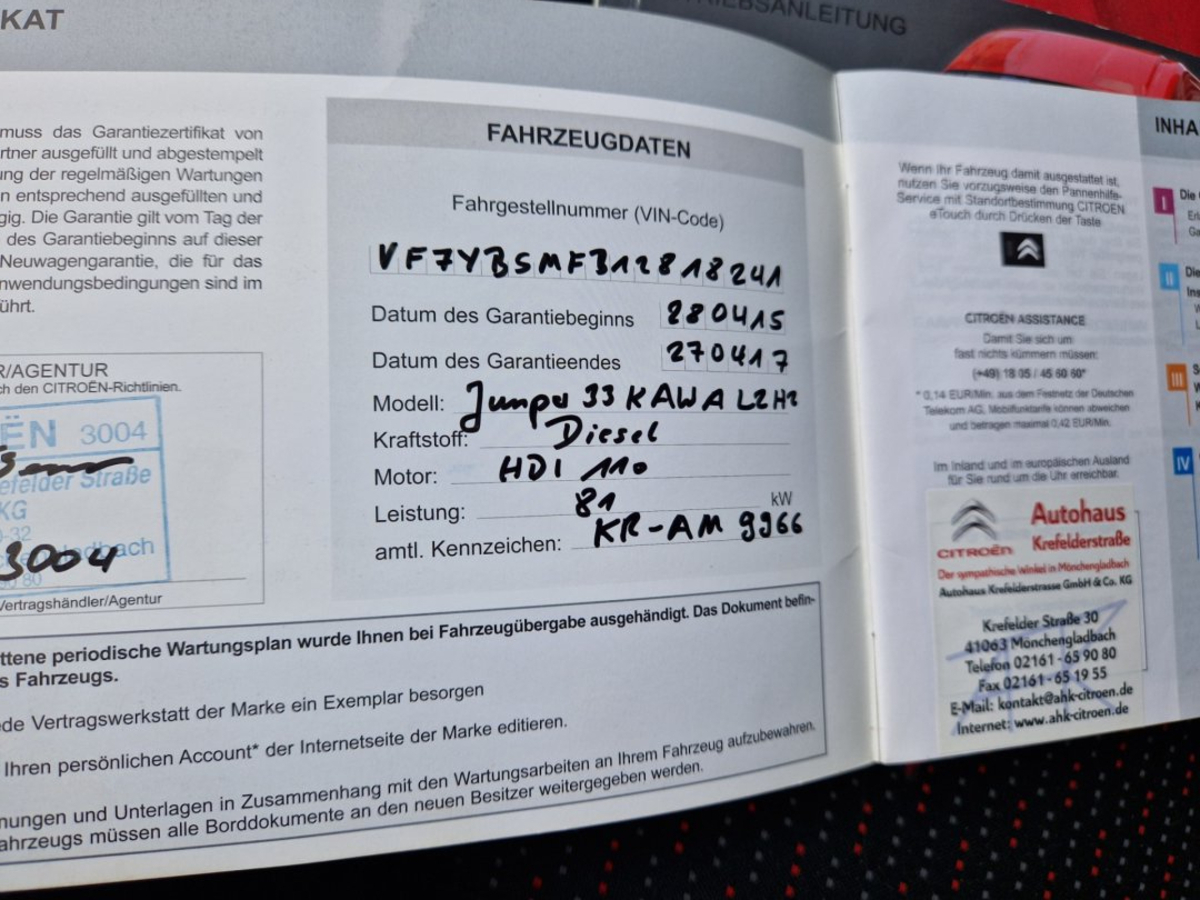 KAT
RIEBSANLEITUNG
muss das Garantiezertifikat von
rtner ausgefüllt und abgestempelt
ung der regelmäßigen Wartungen
n entsprechend ausgefüllten und
gig. Die Garantie gilt vom Tag der
des Garantiebeginns auf dieser
Neuwagengarantie, die für das
nwendungsbedingungen sind im
ührt.
R/AGENTUR
ch den CITROËN-Richtlinien.
ËN 3004
efelder Straße
KG
0-32
adbach
3004
80 80
Vertragshändler/Agentur
FAHRZEUGDATEN
Fahrgestellnummer (VIN-Code)
VF7YBSMFB12818241
Datum des Garantiebeginns 280415
Datum des Garantieendes 270417
Modell: Jumper 33 KAWA L2H2
Kraftstoff: Diesel
Motor: HDI 110
Leistung: 81 kW
amtl. Kennzeichen: KR-AM 9966
ttene periodische Wartungsplan wurde Ihnen bei Fahrzeugübergabe ausgehändigt. Das Dokument befin-
s Fahrzeugs.
ede Vertragswerkstatt der Marke ein Exemplar besorgen
Ihren persönlichen Account* der Internetseite der Marke editieren.
nungen und Unterlagen in Zusammenhang mit den Wartungsarbeiten an Ihrem Fahrzeug aufzubewahren.
ahrzeugs müssen alle Borddokumente an den neuen Besitzer weitergegeben werden.
Wenn Ihr Fahrzeug damit ausgestattet ist,
nutzen Sie vorzugsweise den Pannenhilfe-
Service mit Standortbestimmung CITROËN
eTouch durch Drücken der Taste
CITROËN ASSISTANCE
Damit Sie sich um
fast nichts kümmern müssen:
(+49) 18 05 / 45 60 60*
* 0,14 EUR/Min. aus dem Festnetz der Deutschen
Telekom AG, Mobilfunktarife können abweichen
und betragen maximal 0,42 EUR/Min.
Im Inland und im europäischen Ausland
für Sie rund um die Uhr erreichbar.
CITROËN
Autohaus
Krefelderstraße
Der sympathische Winkel in Mönchengladbach
Autohaus Krefelderstrasse GmbH & Co. KG
Krefelder Straße 30
41063 Mönchengladbach
Telefon 02161 - 65 90 80
Fax 02161 - 65 19 55
E-Mail: kontakt@ahk-citroen.de
Internet: www.ahk-citroen.de
INHA
I Die
II Die
III
IV